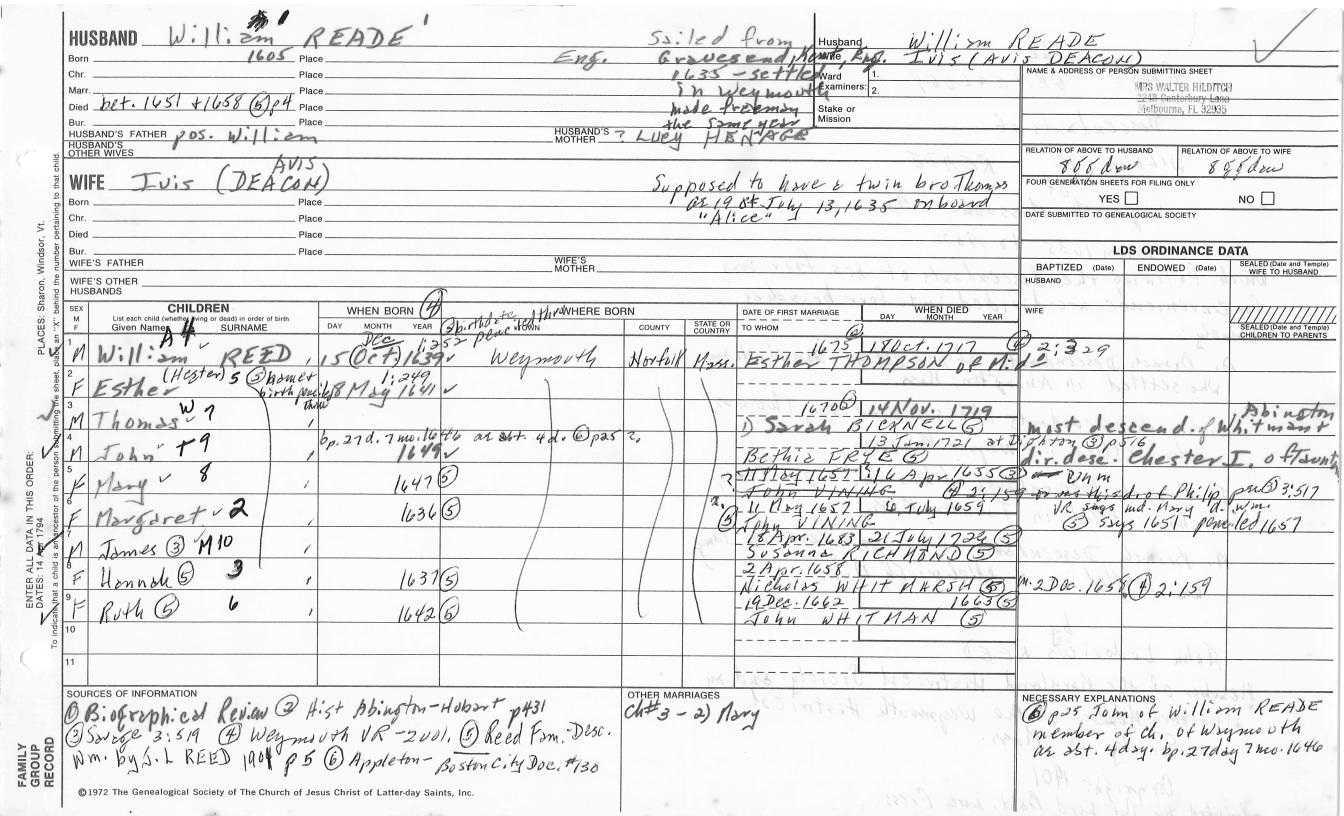 HUSBAND William READE
Born 1605 Place Eng.
Chr. Place
Marr. Place
Died bet. 1651 + 1658 (5) p4 Place
Bur. Place
HUSBAND'S FATHER pos. William HUSBAND'S MOTHER ? Lucy HENAGE
HUSBAND'S OTHER WIVES
Sailed from
Gravesend, Kent, Eng.
1635 - settled
in Weymouth
made freeman
the same year
Husband William READE
Wife Ivis (AVIS DEACON)
Ward 1.
Examiners: 2.
Stake or
Mission
NAME & ADDRESS OF PERSON SUBMITTING SHEET
MRS WALTER HILDITCH
Canterbury Lane
Melbourne, FL 32935
RELATION OF ABOVE TO HUSBAND RELATION OF ABOVE TO WIFE
FOUR GENERATION SHEETS FOR FILING ONLY
YES NO
DATE SUBMITTED TO GENEALOGICAL SOCIETY
AVIS
WIFE Ivis (DEACON)
Born Place
Chr. Place
Died Place
Bur. Place
WIFE'S FATHER WIFE'S MOTHER
WIFE'S OTHER HUSBANDS
Supposed to have a twin bro Thomas
ae 19 July 13, 1635 on board
"Alice"
LDS ORDINANCE DATA
BAPTIZED (Date) ENDOWED (Date) SEALED (Date and Temple) WIFE TO HUSBAND
HUSBAND
WIFE
SEALED (Date and Temple) CHILDREN TO PARENTS
SEX M F
CHILDREN
List each child (whether living or dead) in order of birth
Given Names SURNAME
WHEN BORN (4)
DAY MONTH YEAR
WHERE BORN
TOWN COUNTY STATE OR COUNTRY
DATE OF FIRST MARRIAGE
TO WHOM
WHEN DIED
DAY MONTH YEAR
1 M William REED 15 (Oct) 1639 Weymouth Norfolk Mass.
Dec 1:252
1675 18 Oct. 1717
Esther THOMPSON of Mid
2 F Esther (Hester) 5 18 May 1641
1:249
3 M Thomas 7
1670 14 Nov. 1719
1) Sarah BICKNELL (5)
Abington
most descend. of Whitman
4 M John 9 bp. 27d. 7mo. 1646 ae abt. 4d. (6) p25 ?
1649
13 Jan. 1721 at Dighton (3) p516
Bethia FRYE (5)
dir. desc. Chester I. of Taunt
5 F Mary 8 1647 (5)
11 May 1657 16 Apr. 1655 (3)
John VINING (4) 2:159 or was this d. of Philip (3) 3:517
VR says md. Mary d. Wm.
(5) says 1651 penciled 1657
6 F Margaret 2 1636 (5)
11 May 1657 6 July 1659
John VINING
7 M James (3) M10
18 Apr. 1683 21 July 1726 (5)
Susanna RICHMOND (5)
8 F Hannah (5) 3 1637 (5)
2 Apr. 1658
Nicholas WHITMARSH (5) m. 2 Dec. 1658 (4) 2:159
9 F Ruth (5) 6 1642 (5)
19 Dec. 1662 1663 (5)
John WHITMAN (5)
10
11
SOURCES OF INFORMATION
(1) Biographical Review (2) Hist Abington-Hobart p431
(3) Savage 3:519 (4) Weymouth VR-2001, (5) Reed Fam.-Desc.
Wm. by J.L REED 1901 p5 (6) Appleton-Boston City Doc. #130
OTHER MARRIAGES
Ch#3 - 2) Mary
NECESSARY EXPLANATIONS
(6) p25 John of William READE
member of Ch. of Waymouth
ae abt. 4 day. bp. 27 day 7 mo. 1646
©1972 The Genealogical Society of The Church of Jesus Christ of Latter-day Saints, Inc.
FAMILY
GROUP
RECORD
ENTER ALL DATA IN THIS ORDER:
DATES: 14 Apr 1794
PLACES: Sharon, Windsor, Vt.
To indicate that a child is an ancestor of the person submitting the sheet, place an "X" behind the number pertaining to that child.